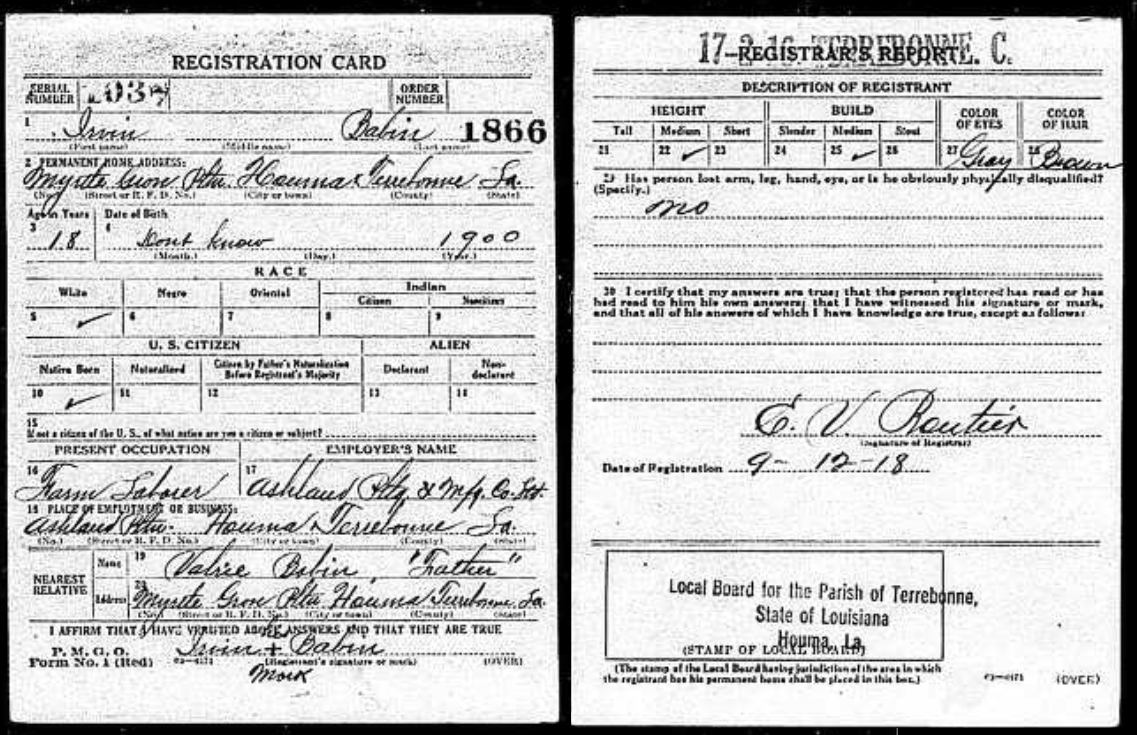 REGISTRATION CARD
SERIAL NUMBER 1037 ORDER NUMBER
1 Irvin Babin 1866
(First name) (Middle name) (Last name)
2 PERMANENT HOME ADDRESS:
Myrtle Grove Pltn. Houma Terrebonne La.
(No.) (Street or R. F. D. No.) (City or town) (County) (State)
Age in Years Date of Birth
3 18 4 Dont know 1900
(Month.) (Day.) (Year.)
RACE
White Negro Oriental Indian
Citizen Noncitizen
5 ✓ 6 7 8 9
U. S. CITIZEN ALIEN
Native Born Naturalized Citizen by Father's Naturalization Before Registrant's Majority Declarant Non-declarant
10 ✓ 11 12 13 14
15
If not a citizen of the U. S., of what nation are you a citizen or subject?
PRESENT OCCUPATION EMPLOYER'S NAME
16 Farm Laborer 17 Ashland Pltg. & Mfg. Co. Ltd.
18 PLACE OF EMPLOYMENT OR BUSINESS:
Ashland Pltn. Houma Terrebonne La.
(No.) (Street or R. F. D. No.) (City or town) (County) (State)
NEAREST RELATIVE Name 19 Valrie Babin, "Father"
Address 20 Myrtle Grove Pltn Houma Terrebonne La.
(No.) (Street or R. F. D. No.) (City or town) (County) (State)
I AFFIRM THAT I HAVE VERIFIED ABOVE ANSWERS AND THAT THEY ARE TRUE
P. M. G. O.
Form No. 1 (Red) 03—6171 Irvin + Babin
(Registrant's signature or mark) (OVER)
Mark
17-2-16 TERREBONNE. C.
REGISTRAR'S REPORT
DESCRIPTION OF REGISTRANT
HEIGHT BUILD COLOR OF EYES COLOR OF HAIR
Tall Medium Short Slender Medium Stout
21 22 ✓ 23 24 25 ✓ 26 27 Gray 28 Brown
29 Has person lost arm, leg, hand, eye, or is he obviously physically disqualified?
(Specify.)
no
30 I certify that my answers are true; that the person registered has read or has
had read to him his own answers; that I have witnessed his signature or mark,
and that all of his answers of which I have knowledge are true, except as follows:
E. V. Routier
(Signature of Registrar)
Date of Registration 9-12-18
Local Board for the Parish of Terrebonne,
State of Louisiana
Houma, La.
(STAMP OF LOCAL BOARD)
(The stamp of the Local Board having jurisdiction of the area in which
the registrant has his permanent home shall be placed in this box.)
03—6171 (OVER)